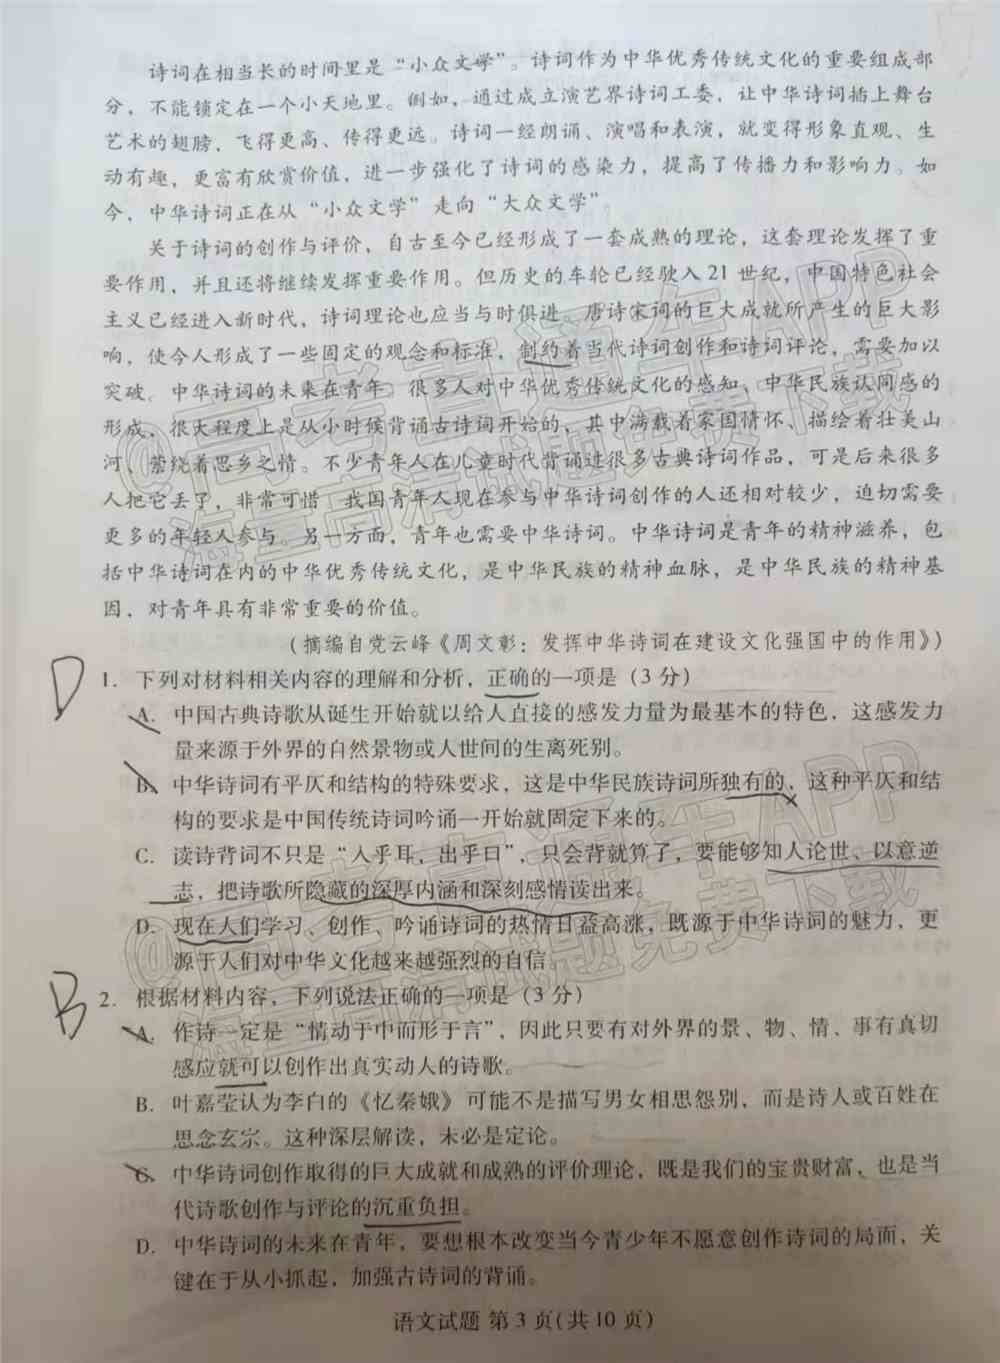 诗词在相当长的时间里是“小众文学”。诗词作为中华优秀传统文化的重要组成部
分，不能锁定在一个小天地里。例如，通过成立演艺界诗词工委，让中华诗词插上舞台
艺术的翅膀，飞得更高、传得更远。诗词一经朗诵、演唱和表演，就变得形象直观、生
动有趣，更富有欣赏价值，进一步强化了诗词的感染力，提高了传播力和影响力。如
今，中华诗词正在从“小众文学”走向“大众文学”
关于诗词的创作与评价，自古至今已经形成了一套成熟的理论，这套理论发挥了重
要作用，并且还将继续发挥重要作用。但历史的车轮已经驶入21世纪，中国特色社会
主义已经进入新时代，诗词理论也应当与时俱进。唐诗宋词的巨大成就所产生的巨大影
响，使今人形成了一些固定的观念和标准，制约着当代诗词创作和诗词评论，需要加以
突破。中华诗词的未来在青年。很多人对中华优秀传统文化的感知、中华民族认同感的
形成，很大程度上是从小时候背诵古诗词开始的，其中满载着家国情怀、描绘着壮美山
河、萦绕着思乡之情。不少青年人在儿童时代背诵过很多古典诗词作品，可是后来很多
人把它丢了，非常可惜 我国青年人现在参与中华诗词创作的人还相对较少，迫切需要
更多的年轻人参与。另一方面，青年也需要中华诗词。中华诗词是青年的精神滋养，包
括中华诗词在内的中华优秀传统文化，是中华民族的精神血脉，是中华民族的精神基
因，对青年具有非常重要的价值。
（摘编自党云峰《周文彰：发挥中华诗词在建设文化强国中的作用》）
D 1. 下列对材料相关内容的理解和分析，正确的一项是（3分）
A. 中国古典诗歌从诞生开始就以给人直接的感发力量为最基本的特色，这感发力
量来源于外界的自然景物或人世间的生离死别。
B. 中华诗词有平仄和结构的特殊要求，这是中华民族诗词所独有的，这种平仄和结
构的要求是中国传统诗词吟诵一开始就固定下来的。
C. 读诗背词不只是“入乎耳，出乎口”，只会背就算了，要能够知人论世、以意逆
志，把诗歌所隐藏的深厚内涵和深刻感情读出来。
D. 现在人们学习、创作、吟诵诗词的热情日益高涨，既源于中华诗词的魅力，更
源于人们对中华文化越来越强烈的自信
B 2. 根据材料内容，下列说法正确的一项是（3分）
A. 作诗一定是“情动于中而形于言”，因此只要有对外界的景、物、情、事有真切
感应就可以创作出真实动人的诗歌。
B. 叶嘉莹认为李白的《忆秦娥》可能不是描写男女相思怨别，而是诗人或百姓在
思念玄宗。这种深层解读，未必是定论。
C. 中华诗词创作取得的巨大成就和成熟的评价理论，既是我们的宝贵财富、也是当
代诗歌创作与评论的沉重负担。
D. 中华诗词的未来在青年，要想根本改变当今青少年不愿意创作诗词的局面，关
键在于从小抓起，加强古诗词的背诵。
语文试题 第3页（共10页）
@高考直通车APP
海量高考试题免费下载
@高考直通车APP
海量高考试题免费下载